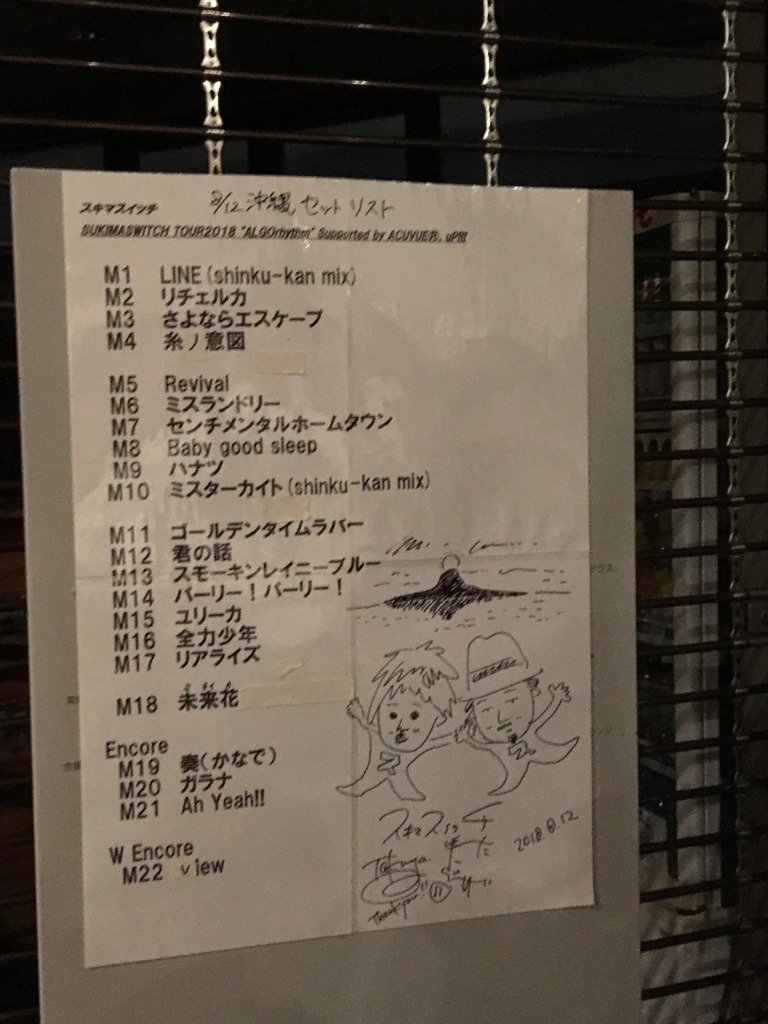 スキマスイッチ 8/12 沖縄 セットリスト
SUKIMASWITCH TOUR2018 "ALGOrhythm" Supported by ACUVUE®, uP!!!
M1 LINE (shinku-kan mix)
M2 リチェルカ
M3 さよならエスケープ
M4 糸ノ意図
M5 Revival
M6 ミスランドリー
M7 センチメンタルホームタウン
M8 Baby good sleep
M9 ハナツ
M10 ミスターカイト(shinku-kan mix)
M11 ゴールデンタイムラバー
M12 君の話
M13 スモーキンレイニーブルー
M14 パーリー!パーリー!
M15 ユリーカ
M16 全力少年
M17 リアライズ
M18 未来花
Encore
M19 奏(かなで)
M20 ガラナ
M21 Ah Yeah!!
W Encore
M22 view
スキマスイッチ
2018.8.12
Takuya
Thank you